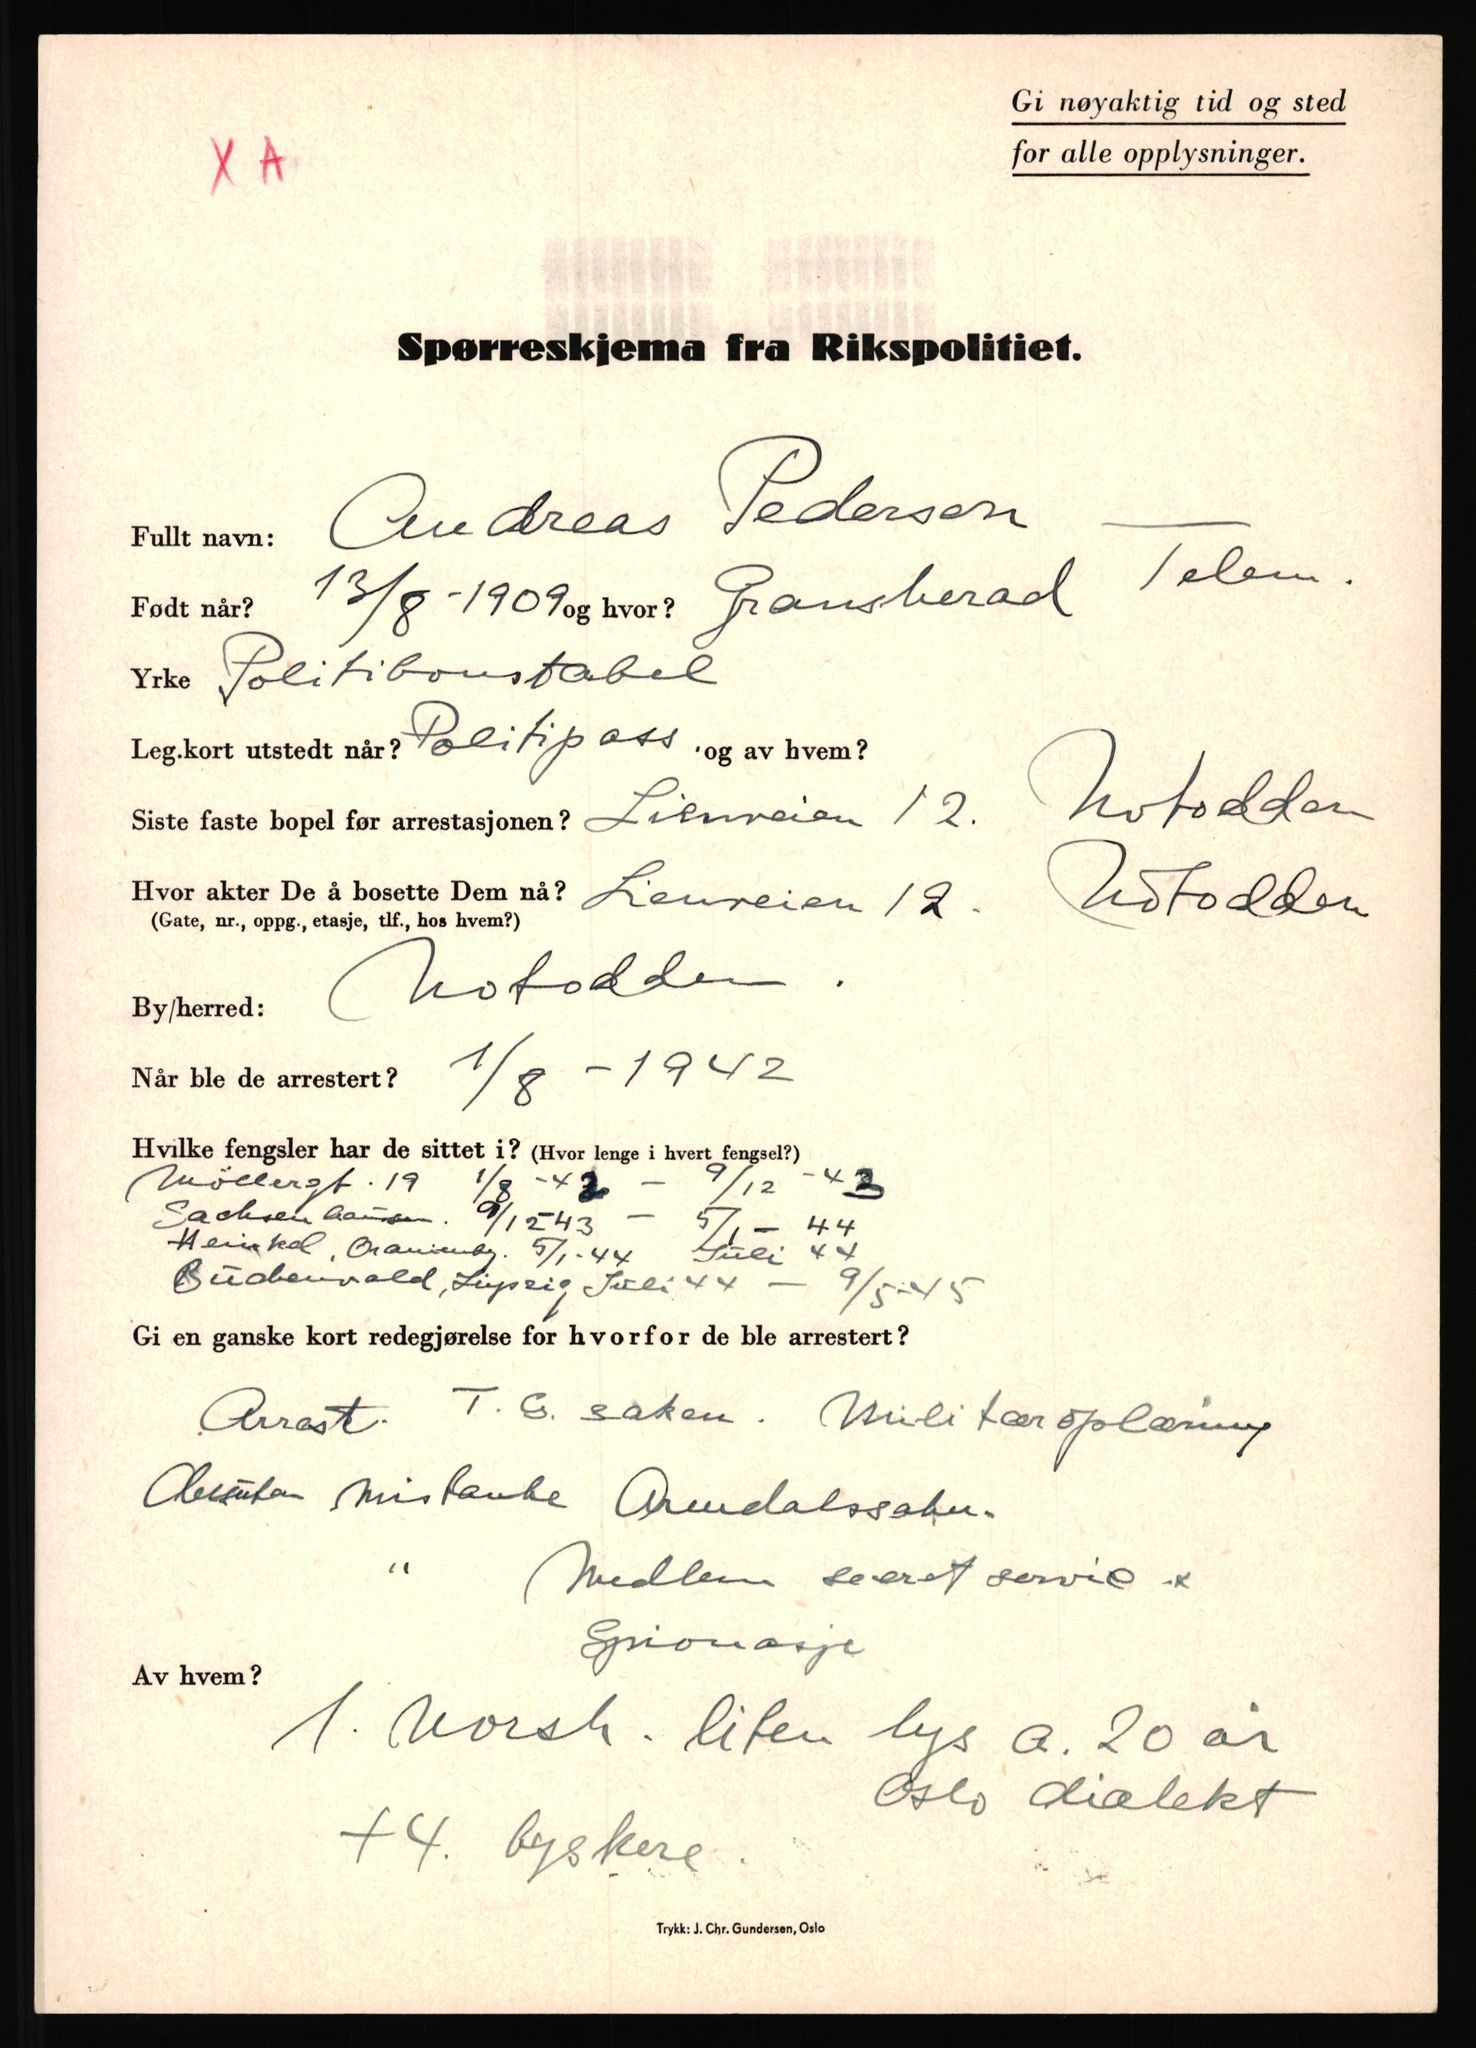 Gi nøyaktig tid og sted
for alle opplysninger.
X A
Spørreskjema fra Rikspolitiet.
Fullt navn: Andreas Pedersen
Født når? 13/8-1909 og hvor? Gransherad Telem.
Yrke Politikonstabel
Leg.kort utstedt når? Politipass og av hvem?
Siste faste bopel før arrestasjonen? Lienveien 12. Notodden
Hvor akter De å bosette Dem nå? Lienveien 12. Notodden
(Gate, nr., oppg., etasje, tlf., hos hvem?)
By/herred: Notodden.
Når ble de arrestert? 1/8 - 1942
Hvilke fengsler har de sittet i? (Hvor lenge i hvert fengsel?)
Möllergt. 19 1/8 - 42 — 9/12 - 43
Sachsenhausen. 9/12-43 — 5/1 - 44
Heinkel, Oranienbg. 5/1-44 Juli 44
Buchenwald, Leipzig Juli 44 — 9/5-45
Gi en ganske kort redegjørelse for hvorfor de ble arrestert?
Arrest. T. G. saken. Militæroplæring
Desuten mistanke Arendalssaken.
" Medlem secret servic
Spionasje
Av hvem?
1. Norsk. liten lys a. 20 år
Oslo dialekt
+ 4. tyskere.
Trykk: J. Chr. Gundersen, Oslo